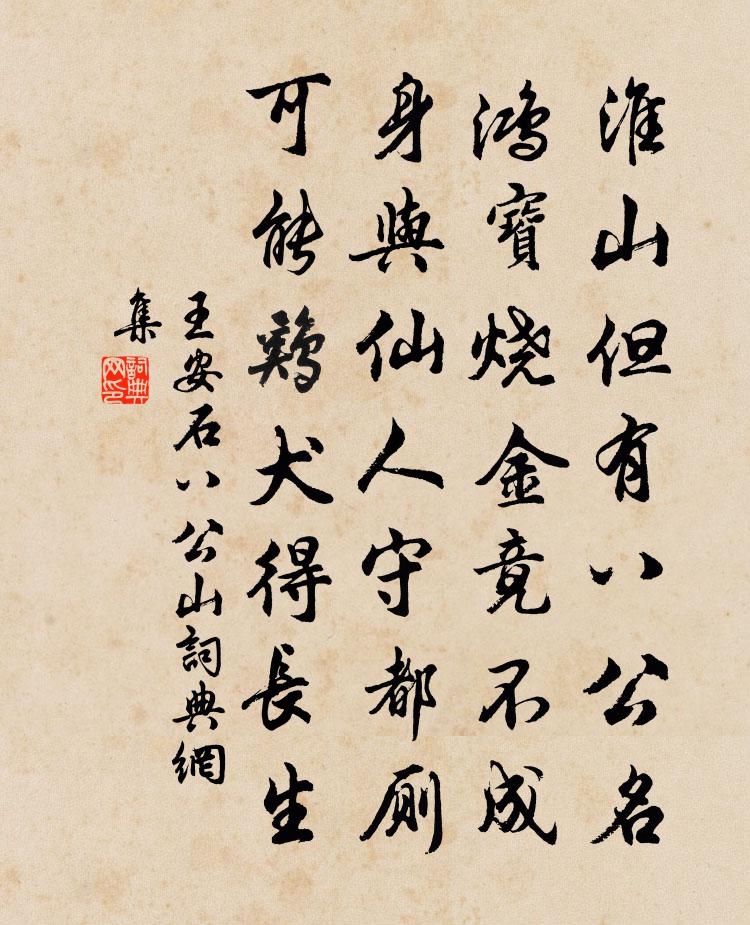 淮山但有八公名
鴻寶燒金竟不成
身與仙人守都厠
可能鷄犬得長生
王安石八公山詞典網
集
詞典
网印